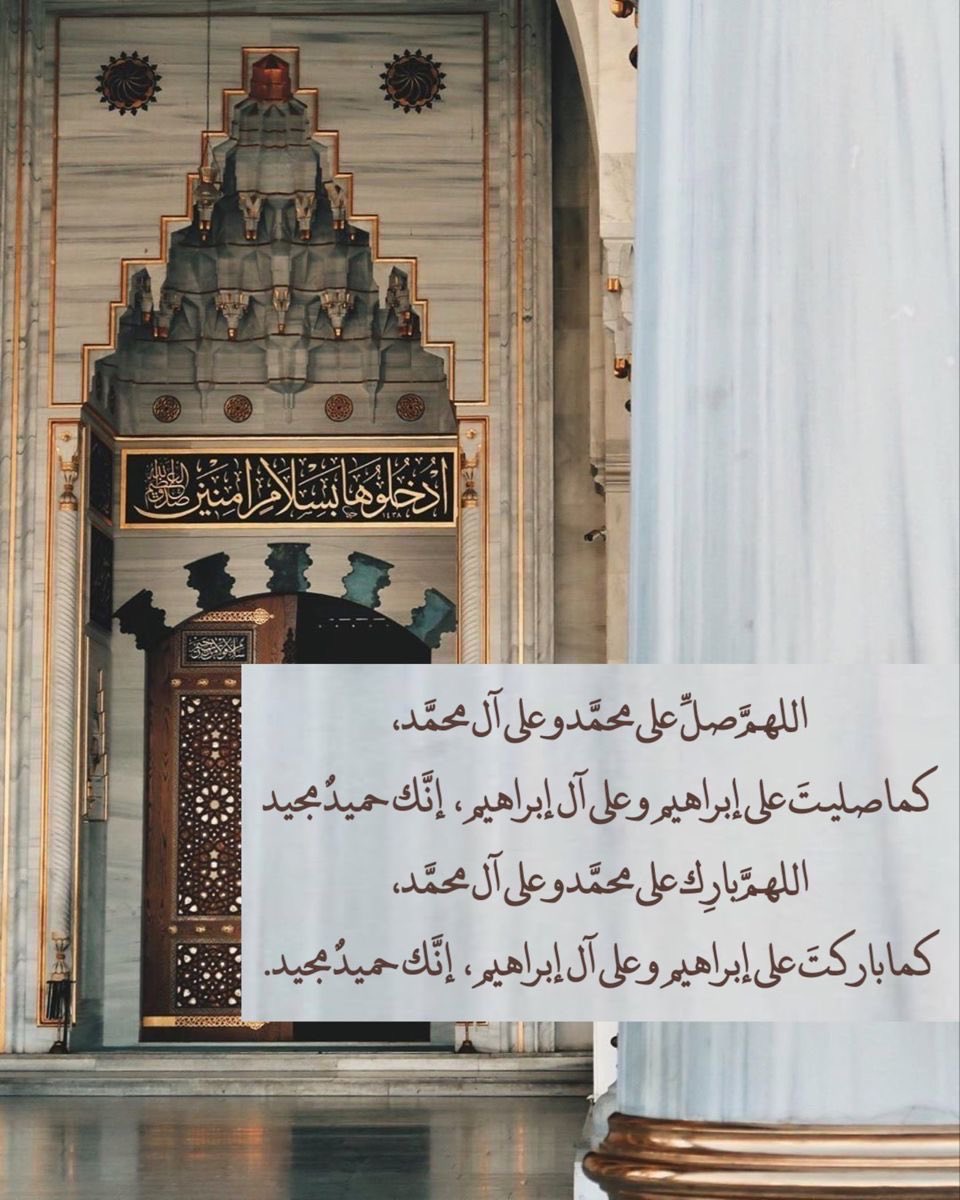 اُدْخُلُوهَا بِسَلَامٍ اٰمِنِينَ
١٤٣٨
اللهمَّ صلِّ على محمَّد وعلى آل محمَّد،
كما صليتَ على إبراهيم وعلى آل إبراهيم، إنَّك حميدٌ مجيد
اللهمَّ بارِك على محمَّد وعلى آل محمَّد،
كما باركتَ على إبراهيم وعلى آل إبراهيم، إنَّك حميدٌ مجيد.